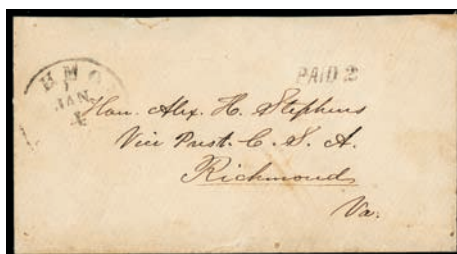 HMO
JAN.
1
PAID 2
Hon. Alex. H. Stephens
Vice Prest. C. S. A.
Richmond,
Va.